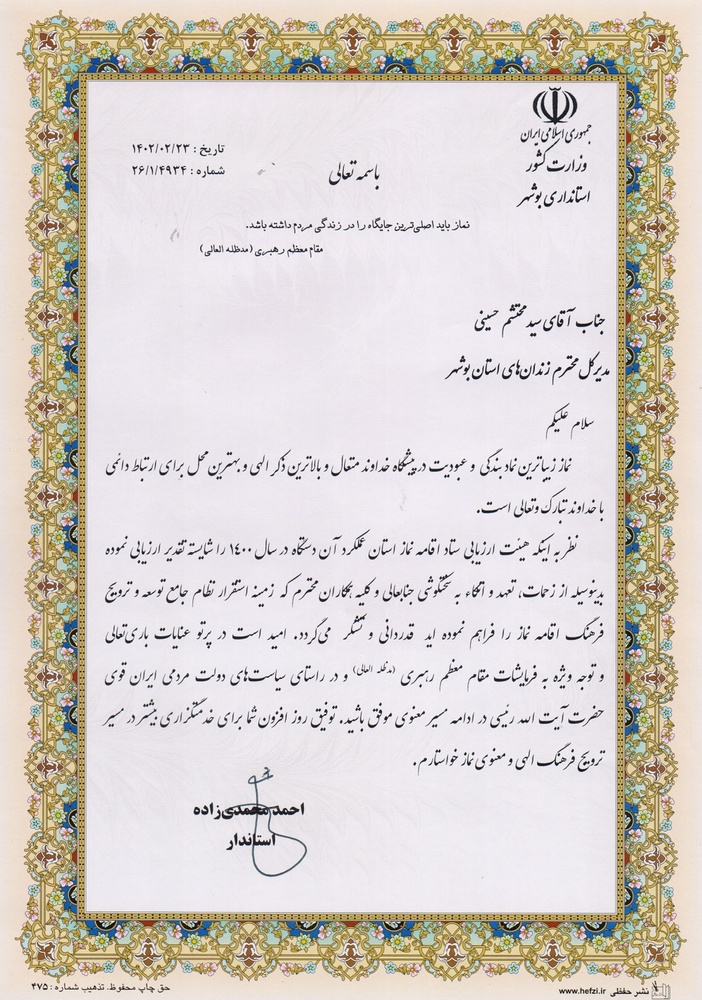 جمهوری اسلامی ایران
وزارت کشور
استانداری بوشهر
تاریخ : ۱۴۰۲/۰۲/۲۳
شماره : ۲۶/۱/۴۹۳۴
باسمه تعالی
نماز باید اصلی‌ترین جایگاه را در زندگی مردم داشته باشد.
مقام معظم رهبری (مدظله العالی)
جناب آقای سید محتشم حسینی
مدیرکل محترم زندان‌های استان بوشهر
سلام علیکم
نماز زیباترین نماد بندگی و عبودیت در پیشگاه خداوند متعال و بالاترین ذکر الهی و بهترین محل برای ارتباط دائمی
با خداوند تبارک وتعالی است.
نظر به اینکه هیئت ارزیابی ستاد اقامه نماز استان عملکرد آن دستگاه در سال ۱۴۰۰ را شایسته تقدیر ارزیابی نموده
بدینوسیله از زحمات، تعهد و اتکاء به سختکوشی جنابعالی و کلیه همکاران محترم که زمینه استقرار نظام جامع توسعه و ترویج
فرهنگ اقامه نماز را فراهم نموده اید قدردانی و تشکر می‌گردد. امید است در پرتو عنایات باری‌تعالی
و توجه ویژه به فرمایشات مقام معظم رهبری (مدظله العالی) و در راستای سیاست‌های دولت مردمی ایران قوی
حضرت آیت الله رئیسی در ادامه مسیر معنوی موفق باشید. توفیق روز افزون شما برای خدمتگزاری بیشتر در مسیر
ترویج فرهنگ الهی و معنوی نماز خواستارم.
احمد محمدی‌زاده
استاندار
نشر حفظی www.hefzi.ir
حق چاپ محفوظ. تذهیب شماره : ۴۷۵